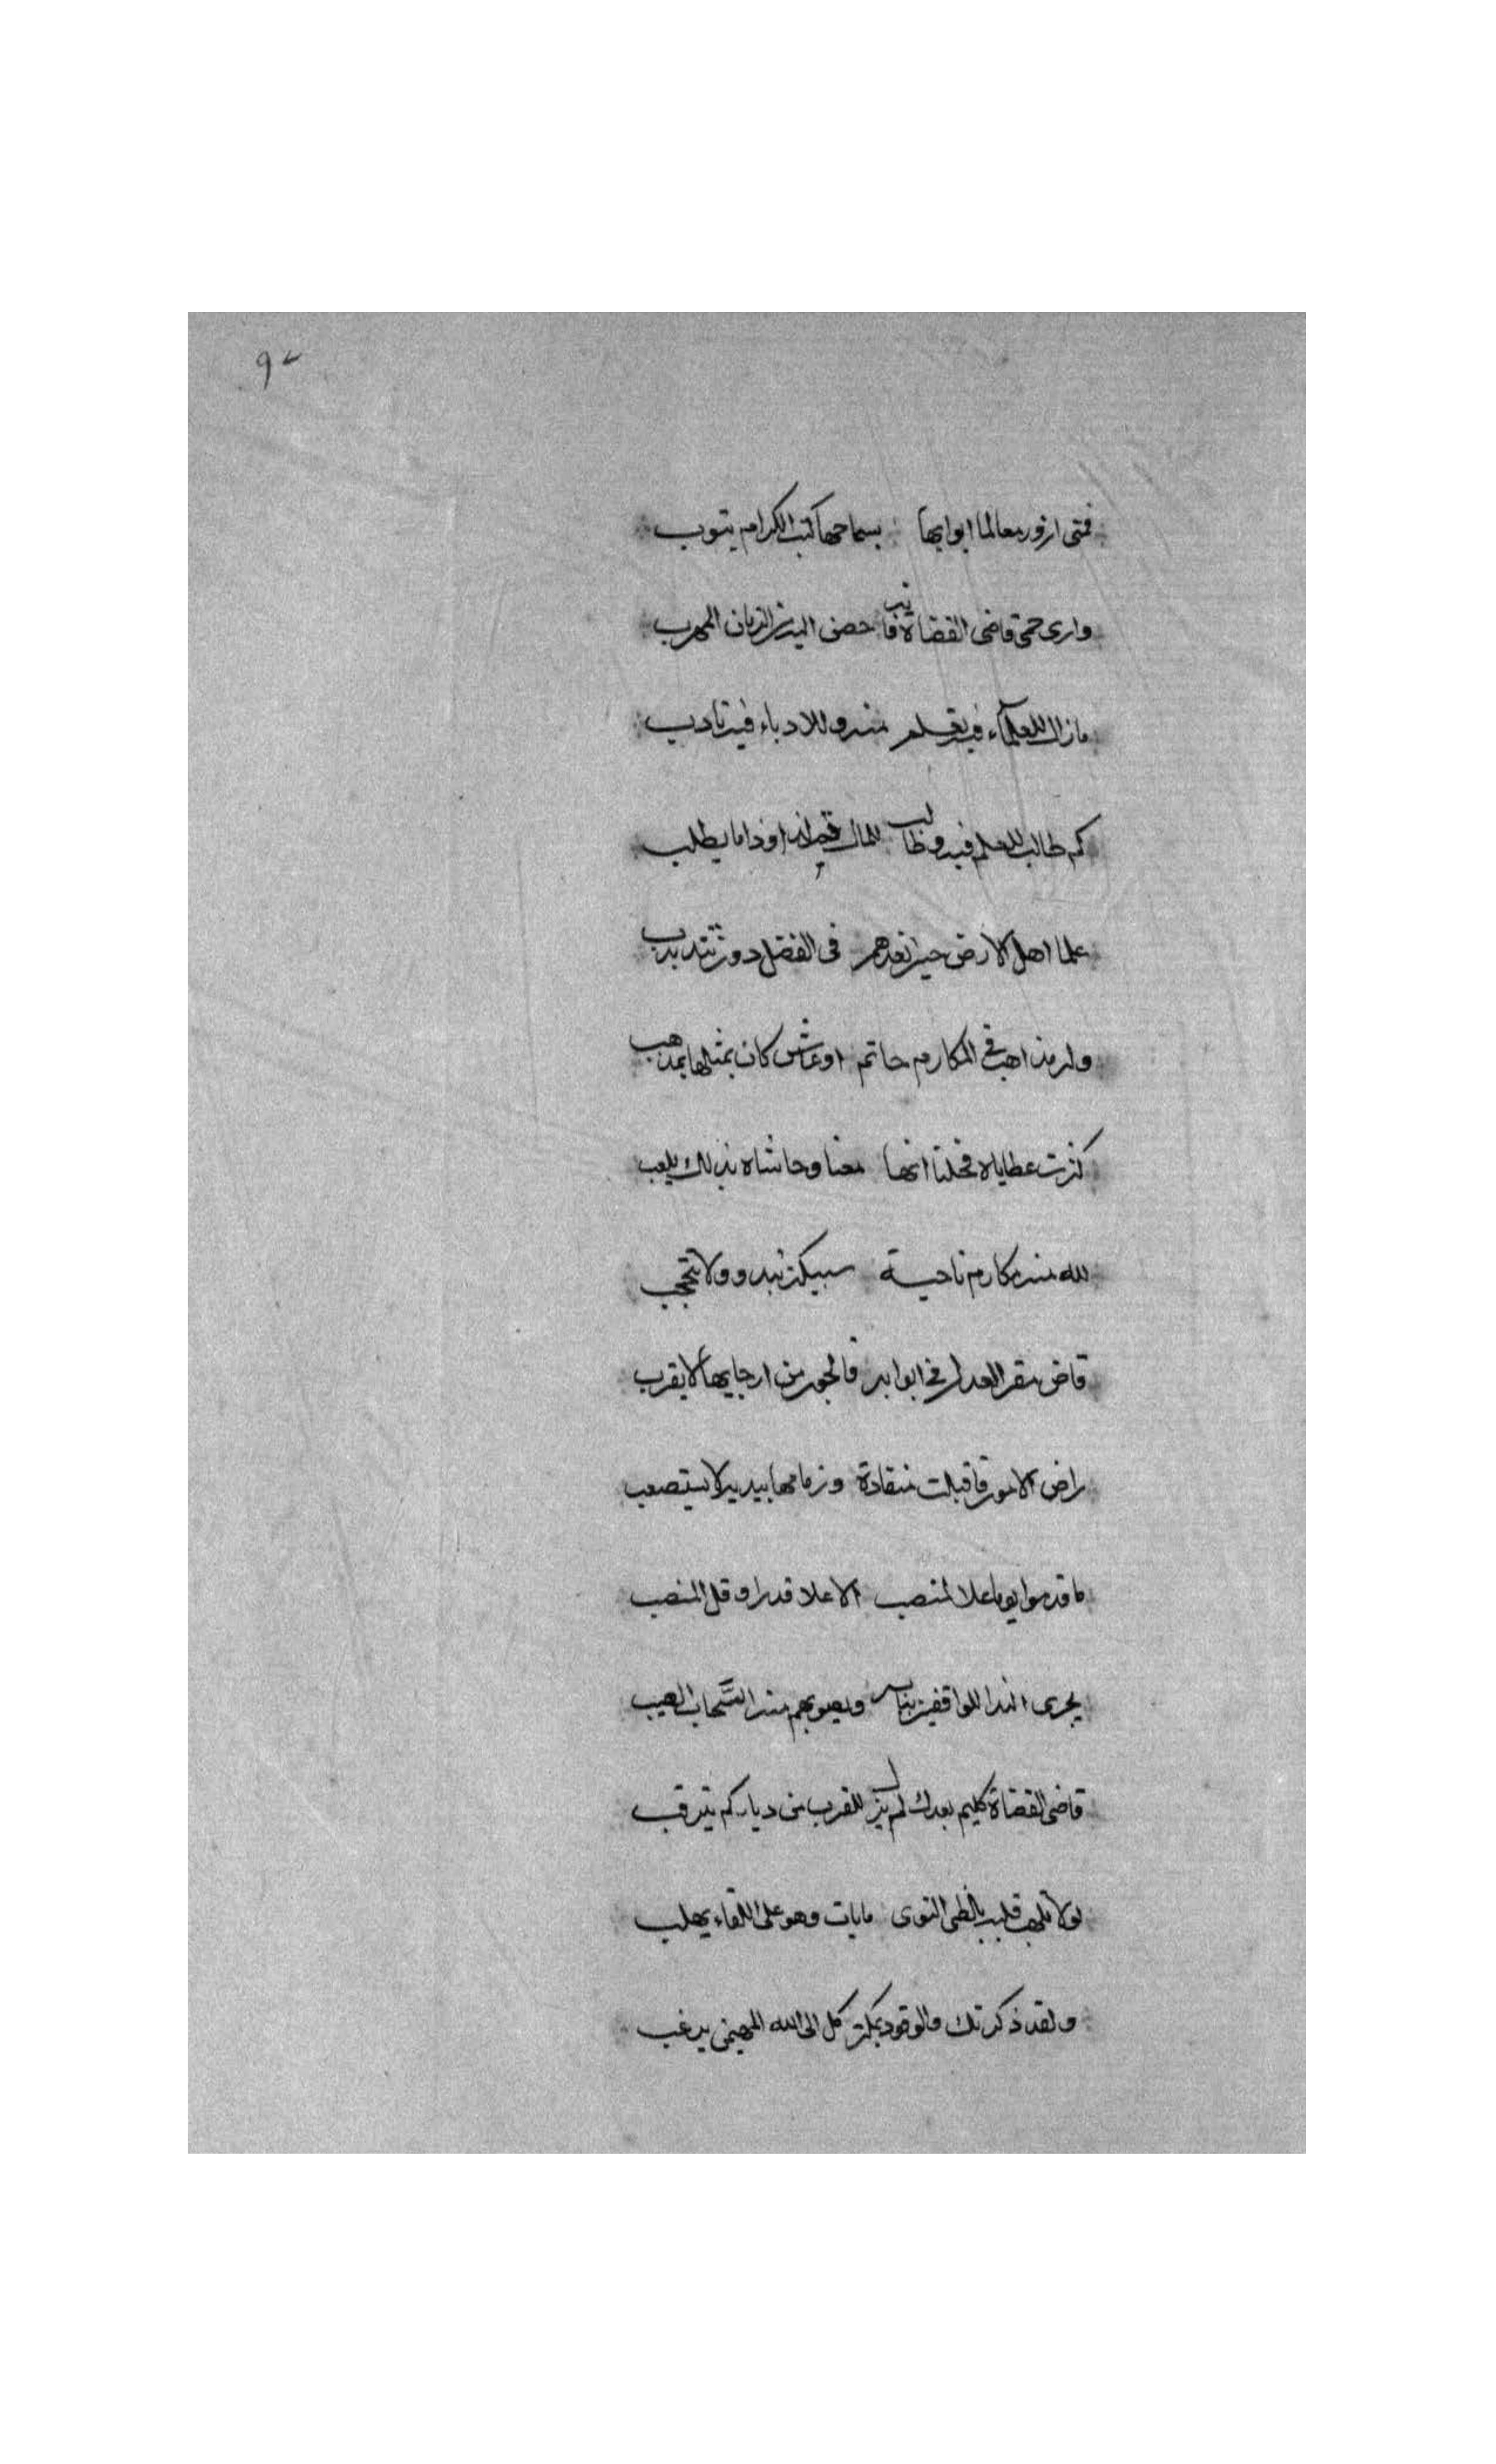 ٩٢
فمتى ازور معالما ابوابها بسماحها كتب الكرام يتوب
وارى حمى قاضى القضاة فانه حصن اليه من الزمان المهرب
ما زال للعلماء فيه تعلم منه وللادباء فيه تادب
كم طالب للعلم فيه وطالب للمال فيه اذا ما يطلب
علما اهل الارض حين تعدهم فى الفضل دون
ولر مذاهب فى المكارم حاتم او عاش كان بمثلها يمذهب
كثرت عطاياه فخلنا انها معنا وحاشاه بذلك يلعب
لله منه مكارم تاجية سبكية تبدو ولا تتحجب
قاض مقر العدل فى ابوابه فالجور من ارجايها لا يقرب
راض الامور فاقبلت منقادة وزمامها بيديه لا يستصعب
ما قدموا يوما علا لمنصب الا علا قدرا وقل المنصب
يجرى الندا للواقفين ببابه ويصوبهم منه السَّحاب الصيب
قاضى القضاة كليم بعدك لم يزل للقرب من دياركم يترقب
لولا تلهب قلبه بلظى النوى ما بات وهو على اللقاء يهلب
ولقد ذكرتك والوقود بمكة كل الى الله المهيمن يرغب